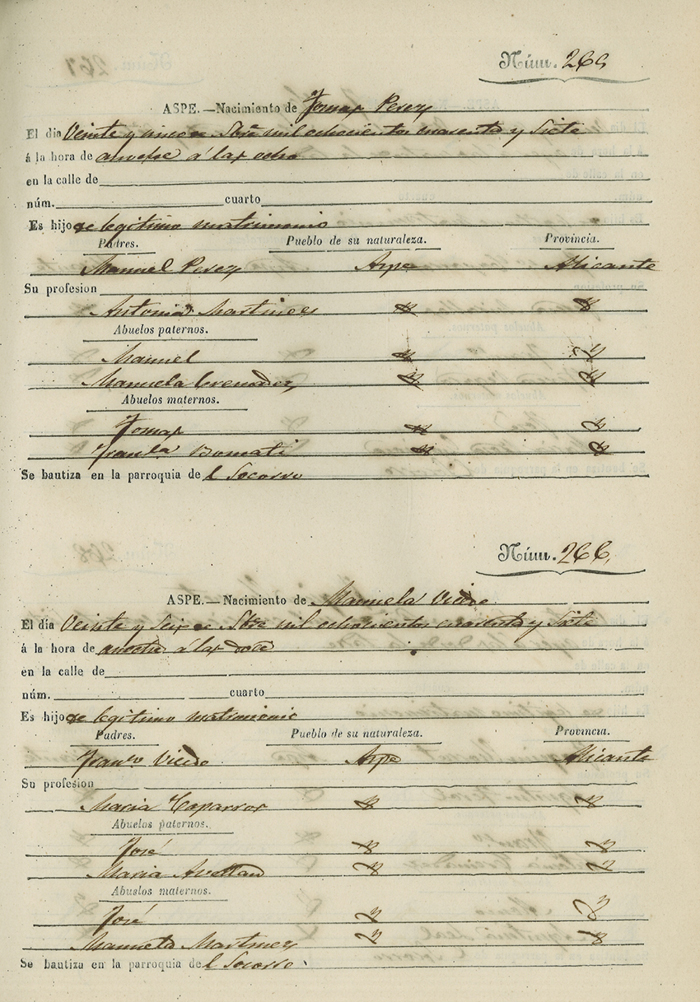 Núm. 265
ASPE.—Nacimiento de Tomas Perez
El dia Veinte y cinco Sbre mil ochocientos cuarenta y Siete
á la hora de anoche a las ocho
en la calle de
núm. cuarto
Es hijo de legitimo matrimonio
Padres. Pueblo de su naturaleza. Provincia.
Manuel Perez Aspe Alicante
Su profesion
Antonia Martinez
Abuelos paternos.
Manuel
Manuela Cremades
Abuelos maternos.
Tomas
Franca
Se bautiza en la parroquia de l Socorro
Núm. 266.
ASPE.—Nacimiento de Manuela Vicedo
El dia Veinte y Seis Sbre mil ochocientos cuarenta y Siete
á la hora de anoche a las doce
en la calle de
núm. cuarto
Es hijo de legitimo matrimonio
Padres. Pueblo de su naturaleza. Provincia.
Franco Vicedo Aspe Alicante
Su profesion
Maria Caparros
Abuelos paternos.
José
Maria Avellan
Abuelos maternos.
José
Manuela Martinez
Se bautiza en la parroquia de l Socorro